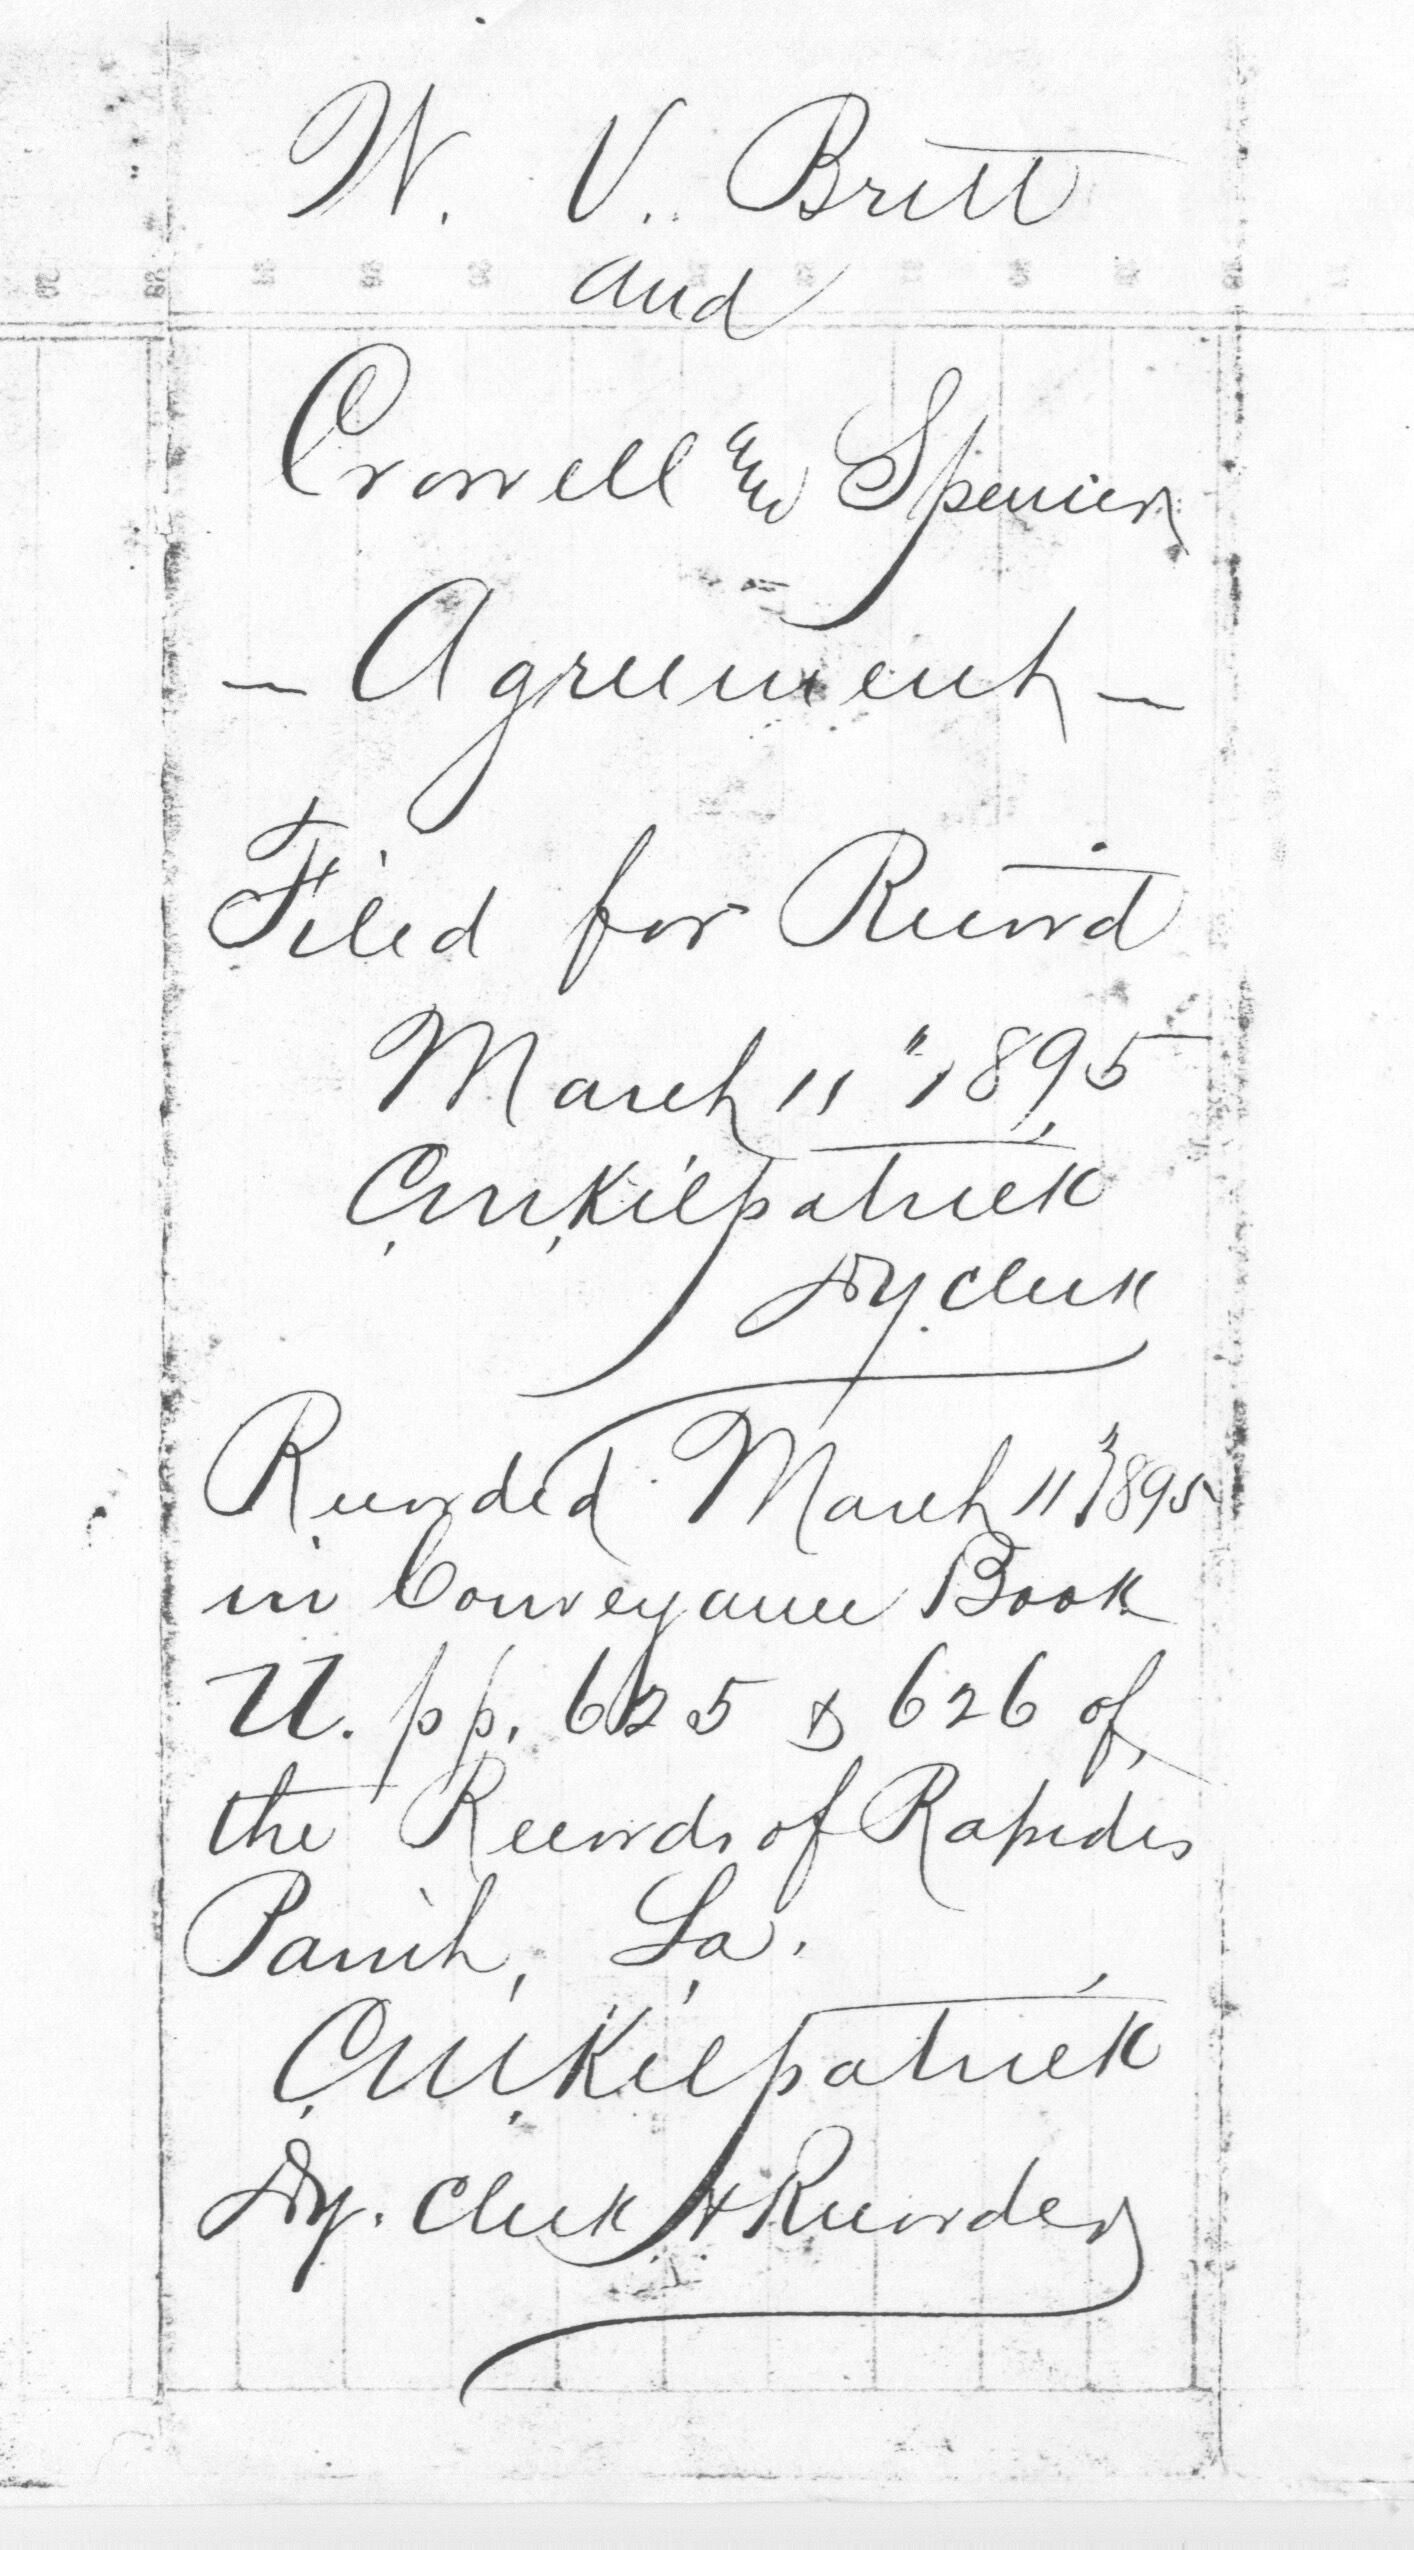 W. V. Britt
and
Crowell & Spencer
- Agreement -
Filed for Record
March 11" 1895
C. M. Kilpatrick
Dy. Clerk
Recorded March 11" 1895
in Conveyance Book
U. pp. 625 & 626 of
the Records of Rapides
Parish, La.
C. M. Kilpatrick
Dy. Clerk & Recorder